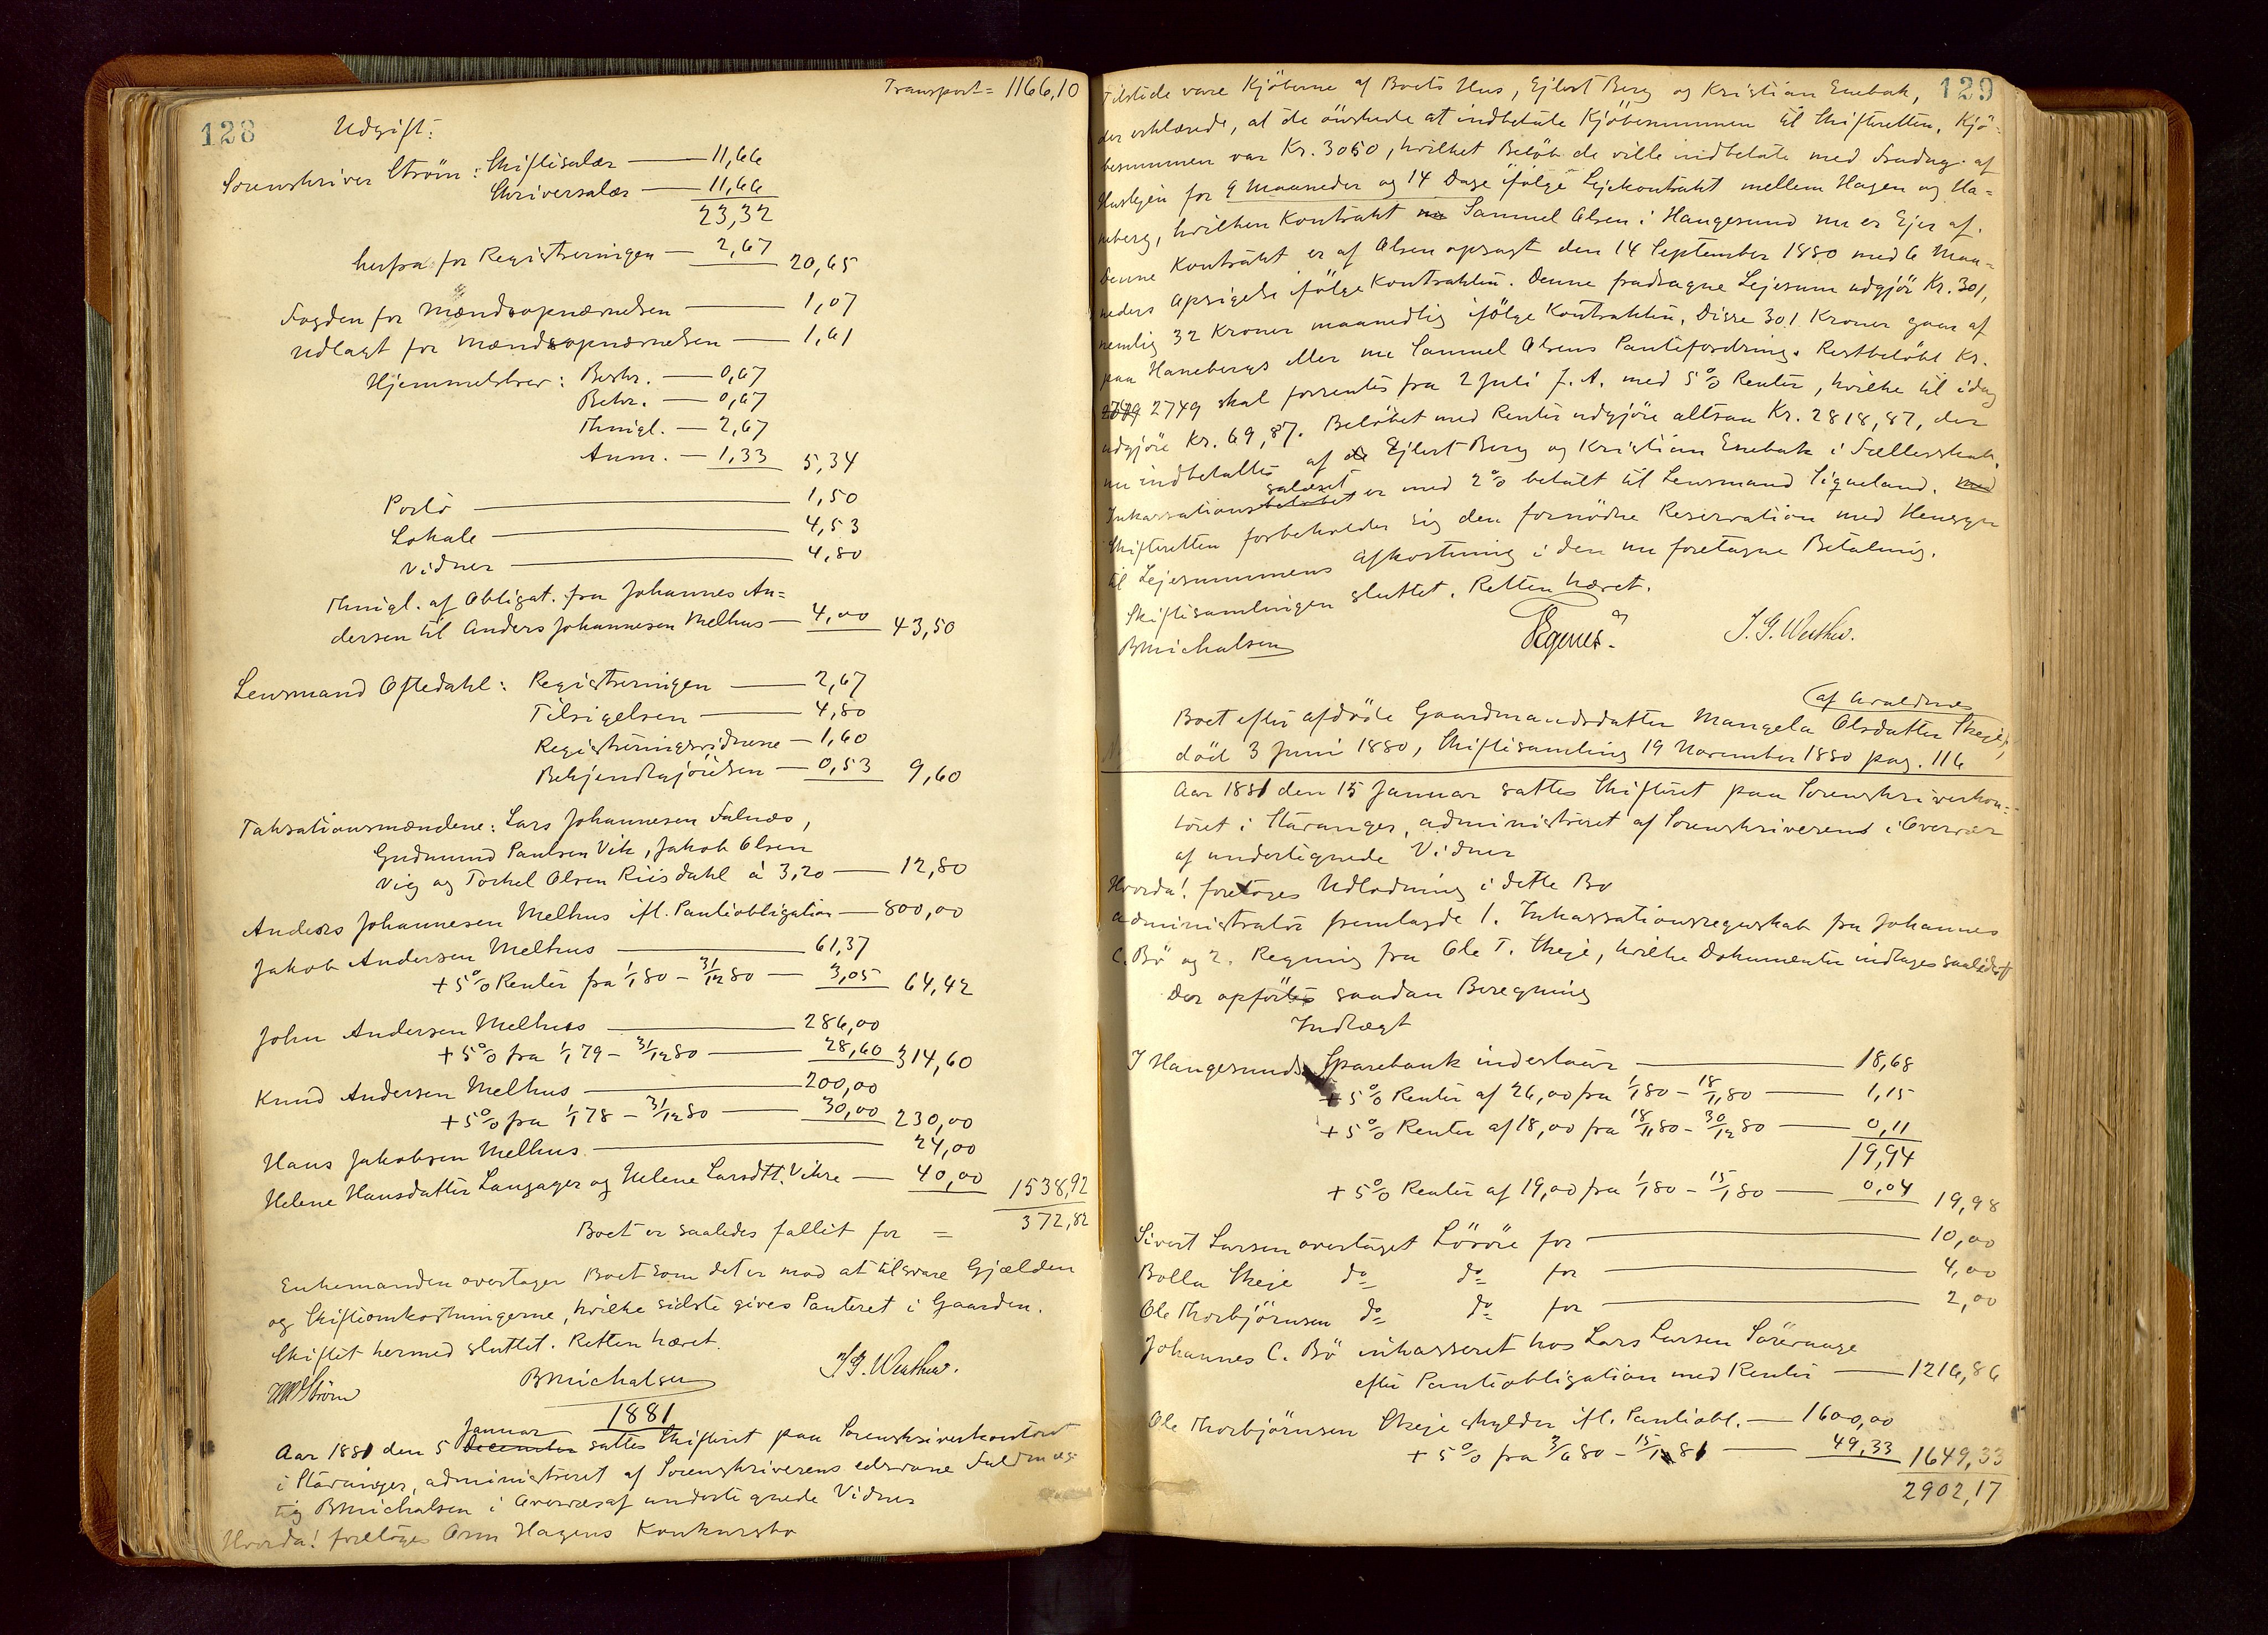 128
Transport = 1166,10
Udgift:
Sorenskriver Strøm: Skiftesalær — 11,66
Skriversalær — 11,66
23,32
herfra for Registreringen — 2,67 20,65
Fogden for Mændsopnævnelsen — 1,07
Udlagt for Mændsopnævnelsen — 1,61
Hjemmelsbrev: Beskr. — 0,67
Bekr. — 0,67
Thnigl. — 2,67
Anm. — 1,33 5,34
Porto — 1,50
Lokale — 4,53
Vidner — 4,80
Thnigl. af Obligat. fra Johannes An=
dersen til Anders Johannesen Melhus — 4,00 43,50
Lensmand Oftedahl: Registreringen — 2,67
Tilsigelsen — 4,80
Registreringsvidnene — 1,60
Bekjendtgjörelsen — 0,53 9,60
Taksationsmændene: Lars Johannesen Falnæs,
Gudmund Paulsen Vik, Jakob Olsen
Vig og Torkel Olsen Riisdahl á 3,20 — 12,80
Anders Johannesen Melhus ifl. Panteobligation — 800,00
Jakob Andersen Melhus — 61,37
+ 5% Renter fra 1/1 80 - 31/12 80 — 3,05 64,42
John Andersen Melhus — 286,00
+ 5% fra 1/1 79 - 31/12 80 — 28,60 314,60
Knud Andersen Melhus — 200,00
+ 5% fra 1/1 78 - 31/12 80 — 30,00 230,00
Hans Jakobsen Melhus — 24,00
Helene Hansdatter Langager og Helene Larsdtt. Vikre — 40,00 1538,92
Boet er saaledes fallit for = 372,82
Enkemanden overtager Boet som det er mod at tilsvare Gjælden
og Skifteomkostningerne, hvilke sidste gives Panteret i Gaarden.
Skiftet hermed sluttet. Retten hævet.
Strøm BMichalsen J. G. Wuthev.
1881
Aar 1881 den 5 december Januar sattes Skifteret paa Sorenskriverkontoret
i Stavanger, administreret af Sorenskriverens edsvorne Fuldmæg=
tig BMichalsen i Overvær af undertegnede Vidner
Hvorda! foretoges Arm Hagens Konkursbo
129
Tilstede vare Kjöberne af Boets Hus, Ejlert Berg og Kristian Enebak,
der erklærede, at de önskede at indbetale Kjöbesummen til Skifteretten. Kjö=
besummen var Kr. 3050, hvilket Belöb de ville indbetale med Fradrag af
Huslejen for 9 Maaneder og 14 Dage ifölge Lejekontrakt mellem Hagen og Ha=
neberg, hvilken Kontrakt nu Samuel Olsen i Haugesund nu er Ejer af.
Denne Kontrakt er af Olsen opsagt den 14 September 1880 med 6 Maa=
neders Opsigelse ifölge Kontrakten. Denne fradragne Lejesum udgjör Kr. 301,
nemlig 32 Kroner maanedlig ifölge Kontrakten. Disse 301 Kroner gaar af
paa Hanebergs eller nu Samuel Olsens Pantefordring. Restbelöbet Kr.
2749 2749 skal forrentes fra 2 Juli f. A. med 5% Renter, hvilke til idag
udgjöre Kr. 69,87. Belöbet med Renter udgjöre altsaa Kr. 2818,87, der
nu indbetaltes af de Ejlert Berg og Kristian Enebak i Fællesskab.
Inkassationsbelöbet salæret er med 2% betalt til Lensmand Siqueland. med
Skifteretten forbeholder sig den fornödne Reservation med Hensyn
til Lejesummens Afkortning i den nu foretagne Betaling.
Skiftesamlingen sluttet. Retten hævet.
BMichalsen Egenes. J. G. Wuthev.
af Avaldsnes
Boet efter afdöde Gaardmandsdatter Mangela Olsdatter Skeje,
död 3 Juni 1880, Skiftesamling 19 November 1880 pag. 116
Aar 1881 den 15 Januar sattes Skifteret paa Sorenskriverkon=
toret i Stavanger, administreret af Sorenskriveren i Overvær
af undertegnede Vidner
Hvorda! foretoges Udlodning i dette Bo
Administrator fremlagde 1. Inkassationsregnskab fra Johannes
C. Bö og 2. Regning fra Ole T. Skeje, hvilke Dokumenter indtages saalydende
Der opförtes saadan Beregning
Indtægt
I Haugesunds Sparebank indestaar — 18,68
+ 5% Renter af 26,00 fra 1/1 80 - 18/11 80 — 1,15
+ 5% Renter af 18,00 fra 18/11 80 - 30/12 80 — 0,11
19,94
+ 5% Renter af 19,00 fra 1/1 80 - 15/1 80 — 0,04 19,98
Sivert Larsen overtaget Lösöre for — 10,00
Bolla Skeje do do for — 4,00
Ole Thorbjörnsen do do for — 2,00
Johannes C. Bö inkasseret hos Lars Larsen Sörevaage
efter Panteobligation med Renter — 1216,86
Ole Thorbjörnsen Skeje skylder ifl. Panteobl. — 1600,00
+ 5% fra 3/6 80 - 15/1 81 — 49,33 1649,33
2902,17